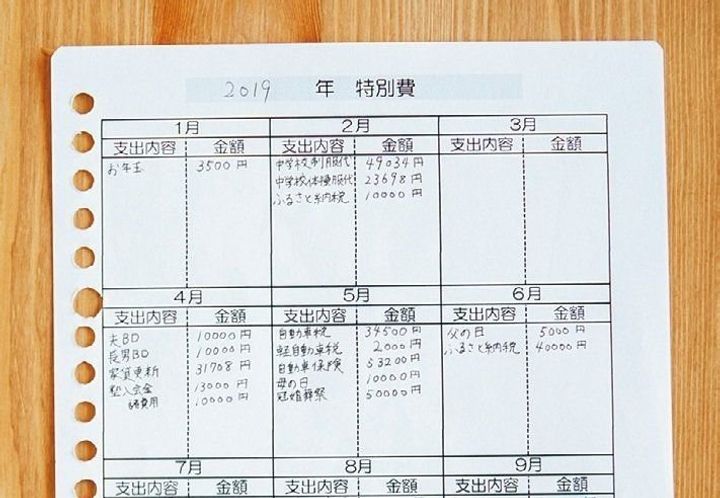 2019 年 特別費
1月 2月 3月
支出内容 金額 支出内容 金額 支出内容 金額
お年玉 3500円 中学校制服代 49034円
中学校体操服代 23698円
ふるさと納税 10000円
4月 5月 6月
支出内容 金額 支出内容 金額 支出内容 金額
夫BD 10000円 自動車税 34500円 父の日 5000円
長男BD 10000円 軽自動車税 2000円 ふるさと納税 40000円
家賃更新 31708円 自動車保険 53200円
塾入会金 13000円 母の日 10000円
諸費用 10000円 冠婚葬祭 50000円
7月 8月 9月
支出内容 金額 支出内容 金額 支出内容 金額